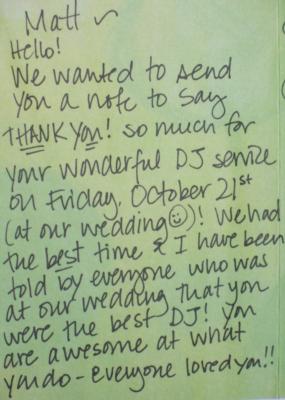 Matt ~
Hello!
We wanted to send
you a note to say
THANK YOU! so much for
your wonderful DJ service
on Friday, October 21st
(at our wedding☺)! We had
the best time & I have been
told by everyone who was
at our wedding that you
were the best DJ! You
are awesome at what
you do - everyone loved you!!